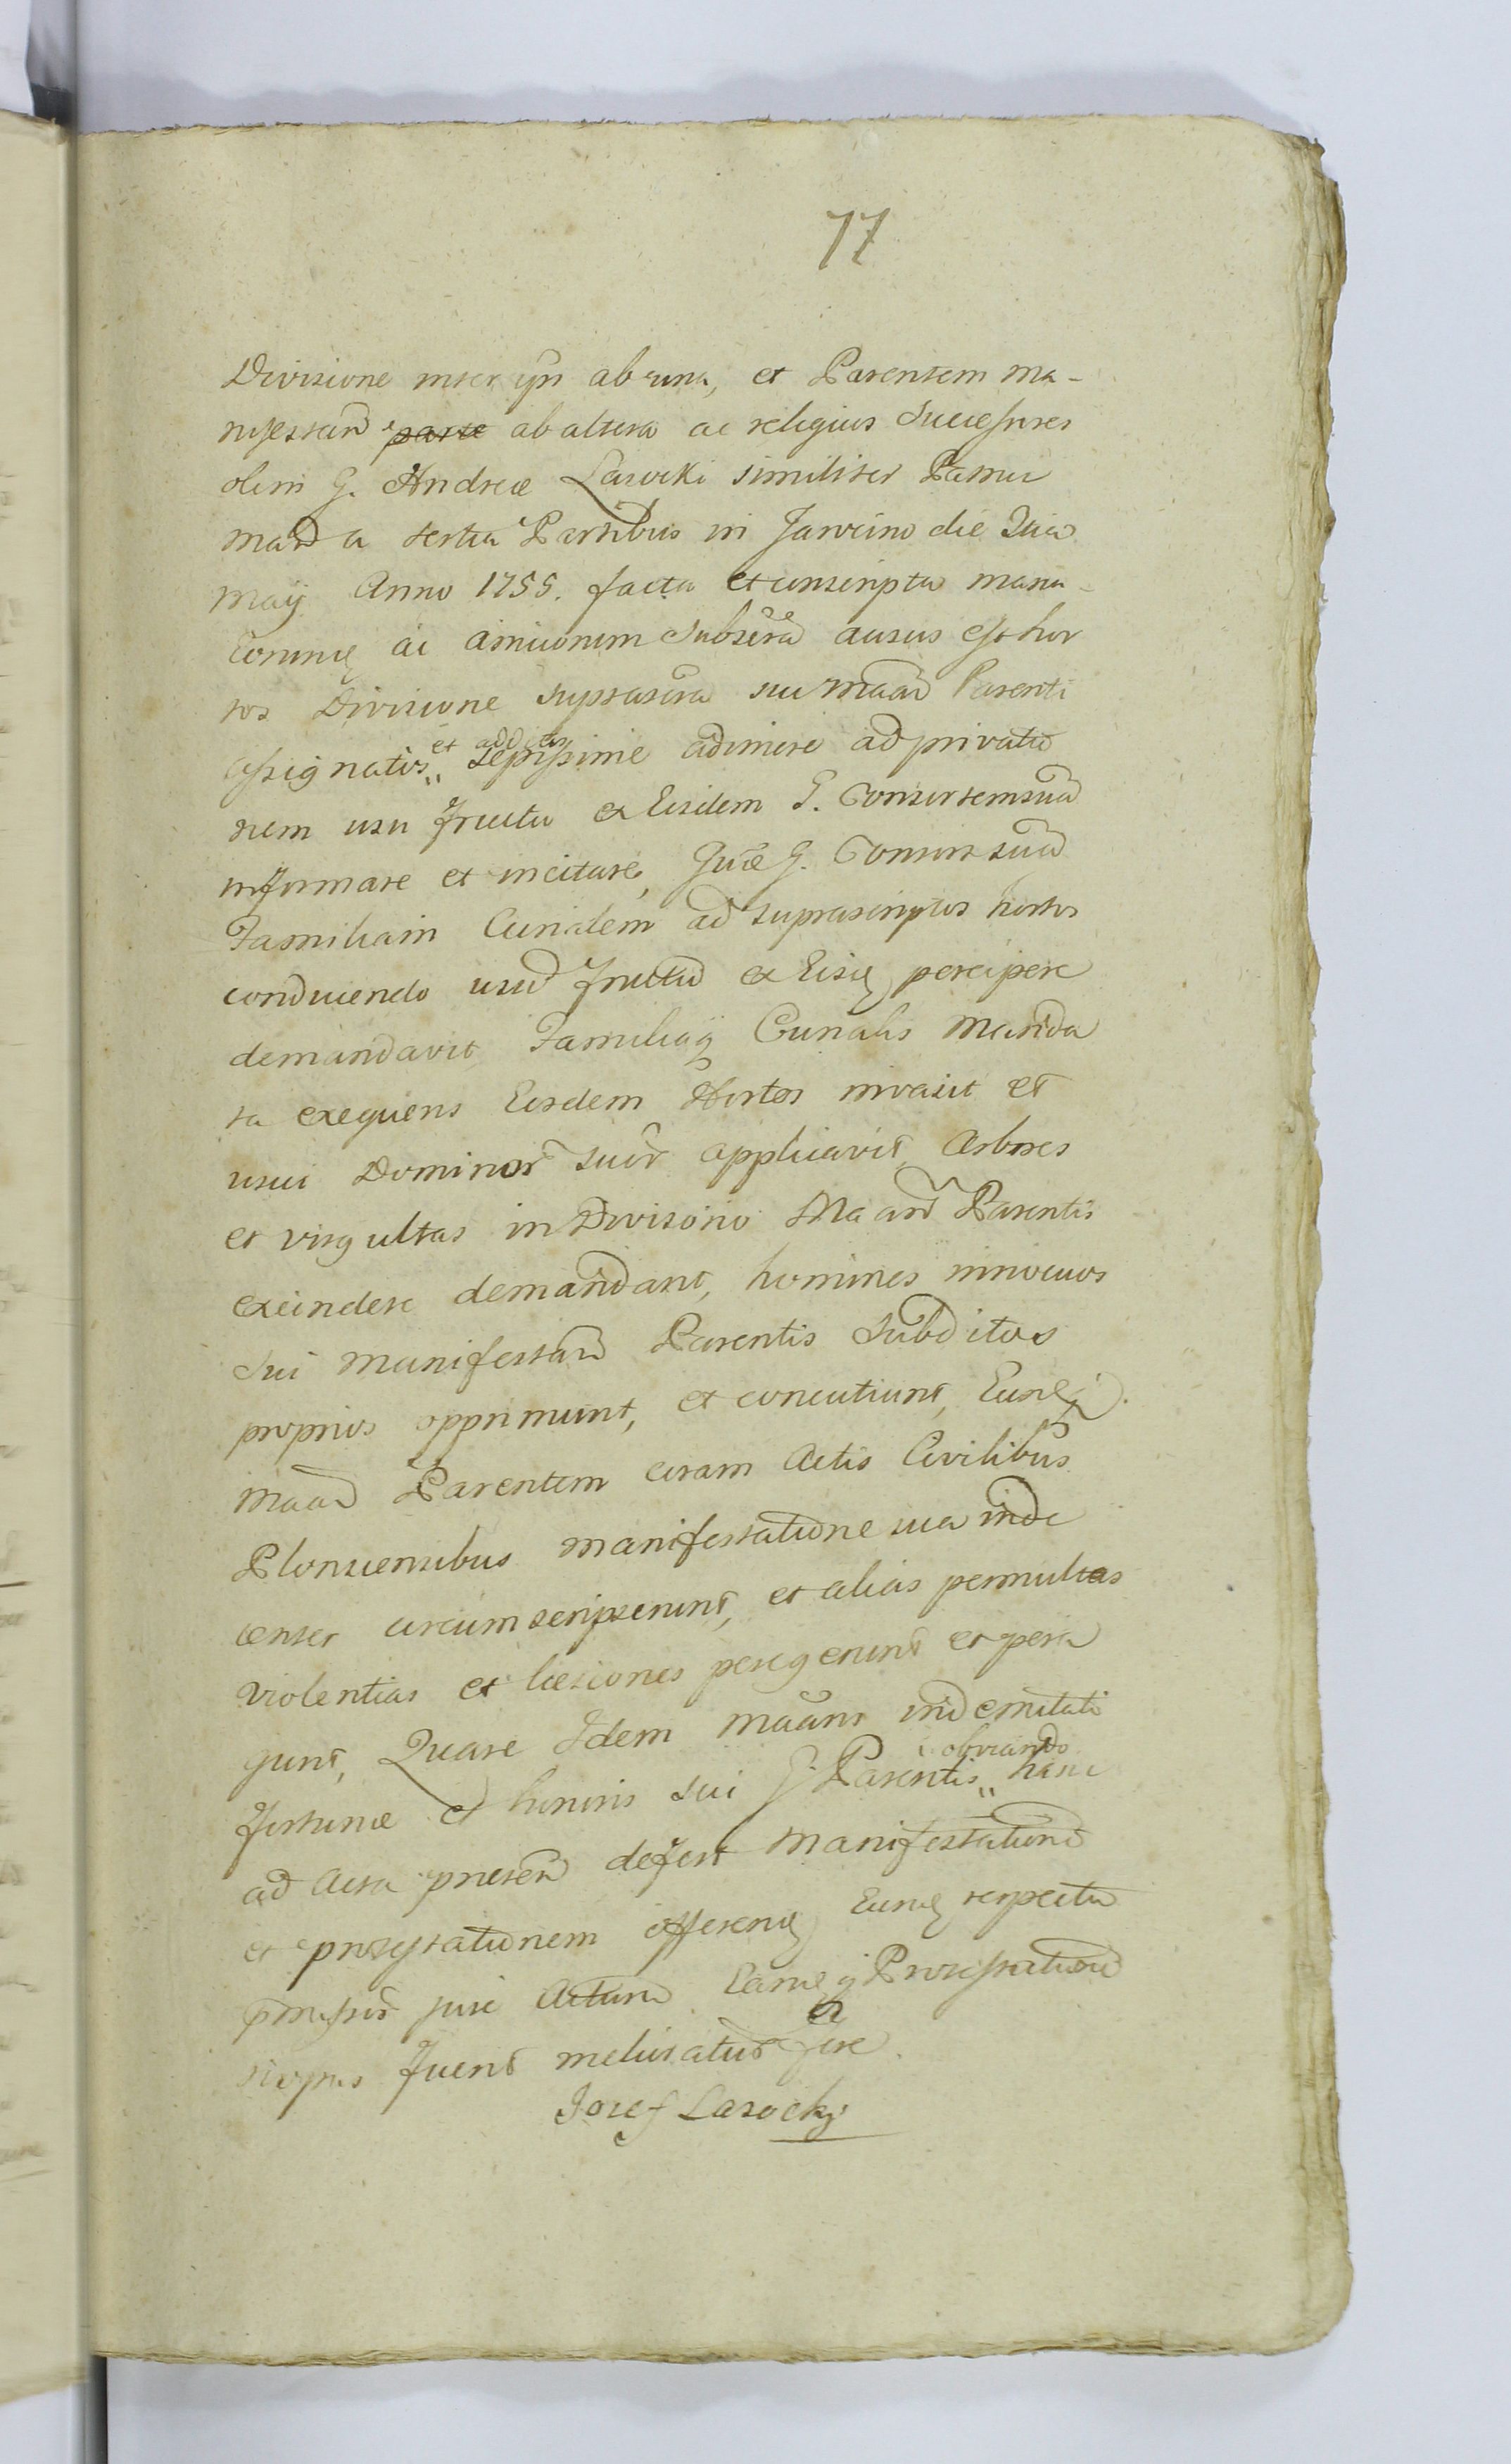 77
Divisione inter ipsos ab una, et Parentem ma-
nifestan parte ab altera ac religuos Successores
olim G. Andreæ Lasocki similiter Patrui
man a tertia Partibus in Jarocino die 2ia
maij Anno 1755. facta et conscripta manu
eorumq ac amicorum Subscra ausus est hor
tos Divisione suprascra sui maan Parenti
assignatos et addictos sepissime adimere ad privatu
rem usu fructu ex Eisdem G. Consortem suã
informare et incitare, Quæ G. Consors suã
Familiam Curialem ad suprascriptos hortos
conducendo usũ fructũ ex Eisq percipere
demandavit, Familiaq Curialis Manda
ta exequens Eosdem Hortos invasit et
usui Dominor suor applicavit, Arbores
et virgultas in Divisorio Maan Parentis
exeindere demandant, homines innocuos
sui Manifestan Parentis Subditos
proprios opprimunt, et concutiunt, Eundq
maan Parentem coram Actis Civilibus
Plonscensibus manifestatione sua inde
center circumscripserunt, et alias permultas
violentias et læsiones peregerunt et pera
gunt, Quare Idem maans indemnitati
fortunæ et honoris sui G. Parentis obviando hanc
ad Acta presen defert Manifestationẽ
et protestationem offerenq Eunq respectu
pmissor jure Acturũ Eamq Protestationẽ
si opus fuerit melioraturũ esse.
Josef Lasocky